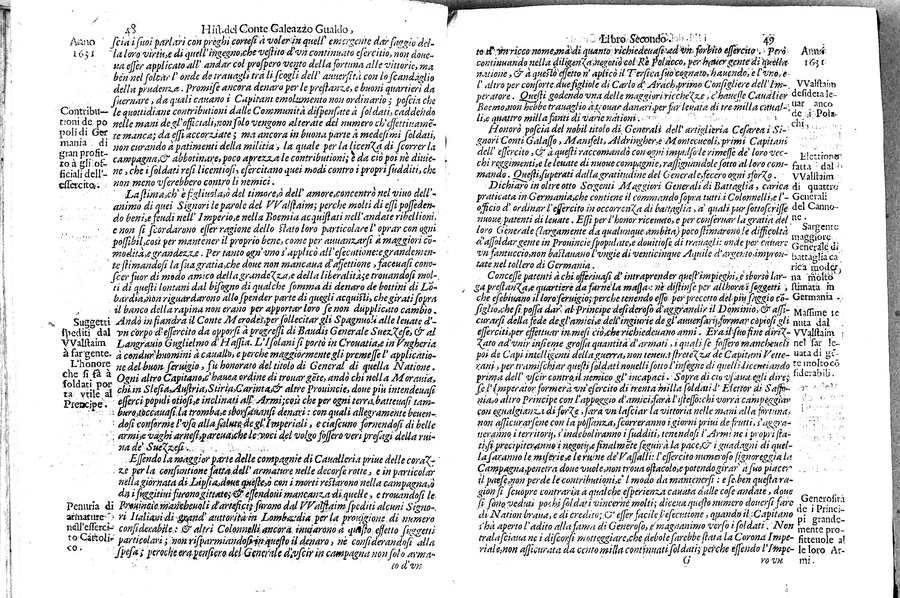 48 Hist. del Conte Galeazzo Gualdo,
Anno
1631
scia i suoi parlari con preghi cortesi à voler in quell' emergente dar saggio del-
la loro virtù, e di quell' ingegno, che vestito d'un continuato esercito, non doue-
ua essere applicato all' andar col prospero vento della fortuna alle vittorie, ma
bèn nel solcar l'onde de trauagli trà li scogli dell' auuersità con lo scandaglio
della prudenza. Promise ancora denari per le prestanze, e buoni quartieri da
suernare, da quali cauano i Capitani emolumento non ordinario; poscia che
le quottidiane contribuzioni dalle Communità dispensate à soldati, caddendo
nelle mani de gl'officiali, non solo vengono alterate del numero ch'effettiuamē-
te manca; da essi accorziate; ma ancora in buona parte à medesimi soldati,
non curando à patimenti della militia, la quale per la licenza di scorrer la
campagna, & abbotinare, poco aprezza le contribuzioni; è da ciò poi nè diuie-
ne, che i soldati resi licentiosi, esercitano quei modi contro i propri sudditi, che
non meno vserebbero contro li nemici.
Contributi-
tioni de po
poli di Ger
mania di
gran profit-
to à gli of-
ficiali dell'
essercito.
La stima, ch' è figliuola ò del timore, ò dell' amore, concentrò nel viuo dell'-
animo di quei Signori le parole del VValstaim; perche molti di essi posseden-
do beni, e feudi nell' Imperio, e nella Boemia acquistati nell' andate ribellioni,
e non si scordarono esser ragione dello stato loro particolare l'oprar con ogni
possibil, così per mantener il proprio bene, come per auuanzarsi à maggiori cō-
modità, e grandezze. Per tanto ogn' vno s'applicò all'esecutione: grandemen-
te stimandosi la sua gratia, che doue non mancaua d'affettione, faceuasi cono-
scer fuor di modo amico della grandezza, e della liberalità; e trouandosi mol-
ti di questi lontani dal bisogno di qualche somma di denaro de bottini di Lō-
bardia, non riguardarono allo spender parte di quegli acquisti, che girati sopra
il banco della rapina non erano per apportar loro se non duplicato cambio.
Andò in fiandra il Conte Merodes, per sollecitar gli Spagnuoli alle leuate d'-
vn corpo d'essercito da opporsi à progressi di Baudis Generale Suezzese, & al
Langrauio Guglielmo d' Hassia. L'Isolani si portò in Crouatia, e in Vngheria
à condur huomini à cauallo, e perche maggiormente gli premesse l' applicatio-
ne del buon seruigio, fù honorato del titolo di General di quella Natione.
Ogni altro Capitano, c'haueua ordine di rouar gēte, andò chi nella Morauia,
chi in Slesia, Austria, Stiria, Carinta, & altre Prouincie, doue più intendeuasi
esserui popoli otiosi, e inclinati all' Armi; così che per ogni terra, batteuasi tam-
buro, toccauasi la tromba, e sborsauansi denari: con quali allegramente beuen-
dosi conforme l'vso alla salute de gl' Imperiali, e ciascuno fornendosi di belle
armi, e vaghi arnesi, pareua, che le voci del volgo fossero veri presagi della rui-
na de' Suezzesi.
Suggetti
spediti dal
VValstaim
à far gente.
L'honore
che si fà à
soldati por
ta vtile al
Prencipe.
Essendo la maggior parte delle compagnie di Caualleria priue delle coraz-
ze per la consuntione fatta dell' armature nelle decorse rotte, e in particolar
nella giornata di Lipsia, doue questi, ò con i morti restarono nella campagna, ò
da i fuggitiui furono gittate; & essendoui mancanza di quelle, e trouandosi le
Prouincie manchenoli d'artefici; furono dal VValstaim spediti alcuni Signo-
ri Italiani di grand' autorità in Lombardia per la prouigione di numero
considerabile: & altri Colonnelli ancora inuiarono à questo effetto suggetti
particolari; non risparmiandosi in questo il denaro, nè considerandosi alla
spesa; perche era pensero del Generale d'vscir in campagna non solo arma-
to d'vn
Penuria di
armature
nell'esserci-
to Cattoli-
co.
Libro Secondo. 49
Anno
1631
to d'vn ricco nome, mà di quanto richiedeuasi ad vn forbito essercito. Però
continuando nella diligenza, negotiò col Rè Polacco, per hauer gente di quella
natione, & à questo effetto n'aplicò il Tersica suo cognato, hauendo, e l'vno, e
l'altro per consorte due figliole di Carlo d'Arach, primo Consigliere dell' Im-
peratore. Questi godendo vna delle maggiori richezze, c'hauesse Cauallier
Boemo, non hebbe trauaglio à trouar danari per far leuata di tre mila caual-
li, e quattro mila fanti di varie nationi.
VValstaim
desidera le-
uar anco
de i Pola-
chi.
Honorò poscia del nobil titolo di Generali dell' artiglieria Cesarea i Si-
gnori Conti Galasso, Mansfelt, Aldringher, e Montecucoli, primi Capitani
dell' essercito, & à questi raccomandò con ogni impulso le rimesse de' loro vec-
chi reggimenti, e le leuate di nuoue compagnie, rassignandole sotto al loro com-
mando. Questi, superati dalla gratitudine del Generale, fecero ogni sforzo.
Elettione
fatta dal
VValstaim
di quattro
Generali
del Canno-
ne.
Dichiarò in oltre otto Sergenti Maggiori Generali di Battaglia, carica
praticata in Germania, che contiene il commando sopra tutti i Colonnelli, e l'
officio d' ordinar l'essercito in occorrenza di battaglia, a' quali pur sottoscrisse
nuoue patenti di leuate. Essi per l'honor riceuuto, e per conseruar la gratia del
loro Generale (largamente da qualunque ambita) poco stimarono le difficoltà
d'assoldar gente in Prouincie spopulate, e douitiose di trauagli: onde per cauar-
vn fantuccio, non bastauano l'vngie di venticinque Aquile d'argento impron-
tate nel tollero di Germania.
Sargente
maggiore
Generale
di battaglia
carica mode
rna molto
stimata in
Germania
Concesse patenti à chi offeriuasi d' intraprender quest'impieghi, e sborsò lar-
ga prestanza, e quartiere da farne la massa: nè distinse per allhora i soggetti,
che esebiuano il loro seruigio; perche tenendo esso per precetto del più saggio cō-
siglio, che si possa dar al Principe desideroso d'aggrandir il Dominio, & assi-
curarsi della fede de gl'amici, e dell'ingiurie de gl'auuersarij, formar copiosi gli
esserciti, per effettuar innanti l'intentione, che publicarla. Era il suo fine driz-
zato ad vnir insieme grossa quantità d'armati, i quali se fossero mancheuoli
poi de Capi intelligenti della guerra, non teneua strettezza de Capitani Vete-
rani, per tramischiar questi soldati nouelli sotto l'insegne di quelli licentiando
prima dell' vscir contro il nemico gl' incapaci. Sopra di ciò vsaua egli dire;
se l'Imperator formerà vn essercito di trenta mila soldati l' Elettor di Saffo-
nia, ò altro Principe con l'appoggio d'amici, farà l'istesso: chi vorrà campeggiar
con egualglianza di forze, sarà vn lasciar la vittoria nelle mani alla fortuna,
non assicurarsene con la possanza, scorreranno i giorni priui de frutti, s'aggra-
ueranno i territorij, s'indebiliranno i sudditi, tenendosi l'Armi ne i proprij sta-
ti si precipiteranno i negotij, finalmēte seguirà la pace, & i guadagni di quel-
la saranno le miserie, e le rouine de' Vassalli: l'essercito numeroso signoreggia la
Campagna, penetra doue vuole, non troua ostacolo, e potendo girar à suo piacer
il paese, non perde le contributioni, e'l modo da mantenersi: e se ben questa ra-
gion si scuopre contraria à qualche esperienza cauata dalle cose andate, doue
si sono veduti pochi soldati vincerne molti; diceua che questo douersi far
di Nation braua, e di credito; & esser facile l'essecutione, quando il Capitano
s'hà aperto l'adito alla fama di Generoso, e magnanimo verso i soldati. Non
tralasciaua ne i discorsi motteggiare, che debole sarebbe stata la Corona Impe-
riale, non assicurata da cento mila continuati soldati; perche essendo l'Impe-
Massime te
nute dal
VValstaim
nel far le-
uata di gē-
te molto cō
siderabili.
Generosità
de i Princi-
pi grande-
mente pro-
fitteuole al
le loro Ar-
mi.
G ro vn